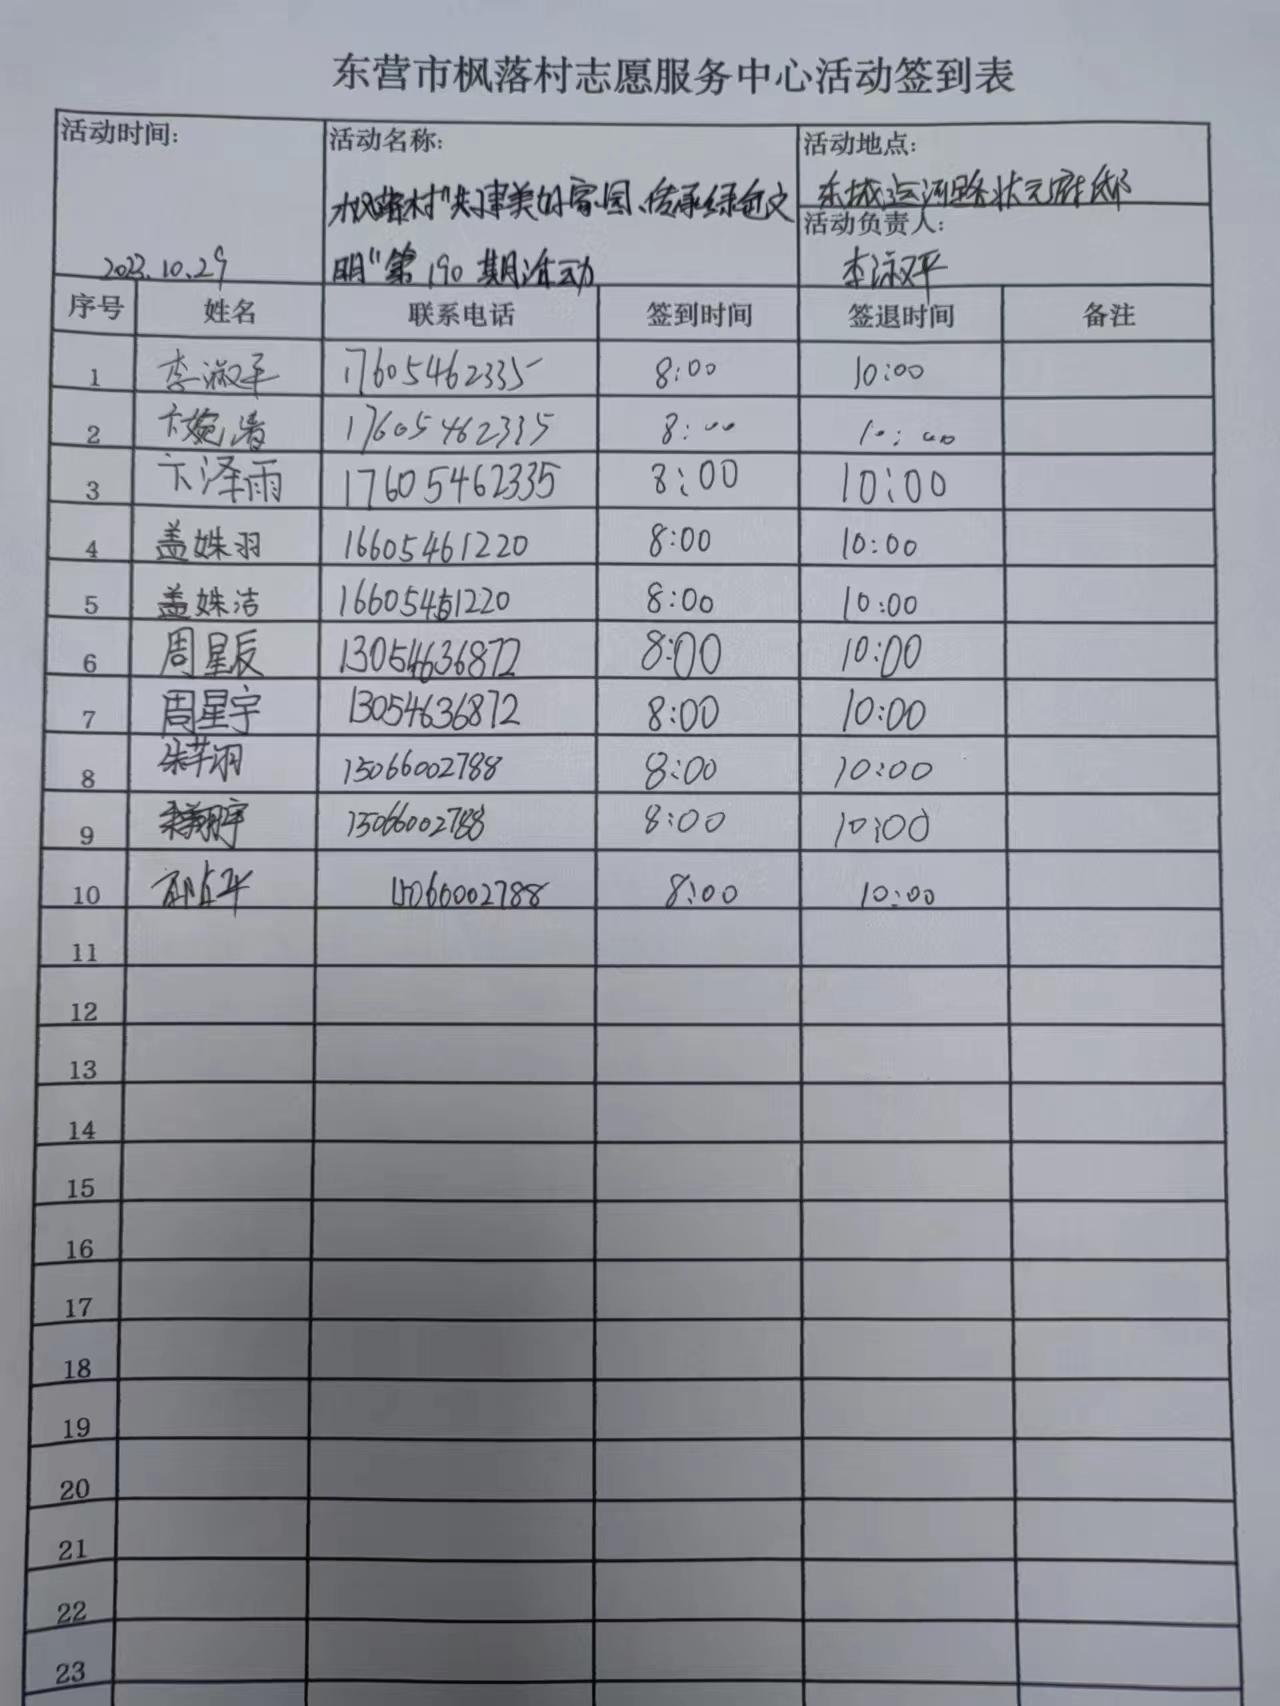 东营市枫落村志愿服务中心活动签到表
活动时间: 2023.10.29
活动名称:
枫落村"共建美好家园、传承绿色文
明"第190期活动
活动地点:
东城运河路状元府邸
活动负责人:
李淑平
序号 姓名 联系电话 签到时间 签退时间 备注
1 李淑平 17605462335 8:00 10:00
2 卞婉清 17605462335 8:00 10:00
3 卞泽雨 17605462335 8:00 10:00
4 盖姝羽 16605461220 8:00 10:00
5 盖姝洁 16605461220 8:00 10:00
6 周星辰 13054636872 8:00 10:00
7 周星宇 13054636872 8:00 10:00
8 15066002788 8:00 10:00
9 15066002788 8:00 10:00
10 15066002788 8:00 10:00
11
12
13
14
15
16
17
18
19
20
21
22
23